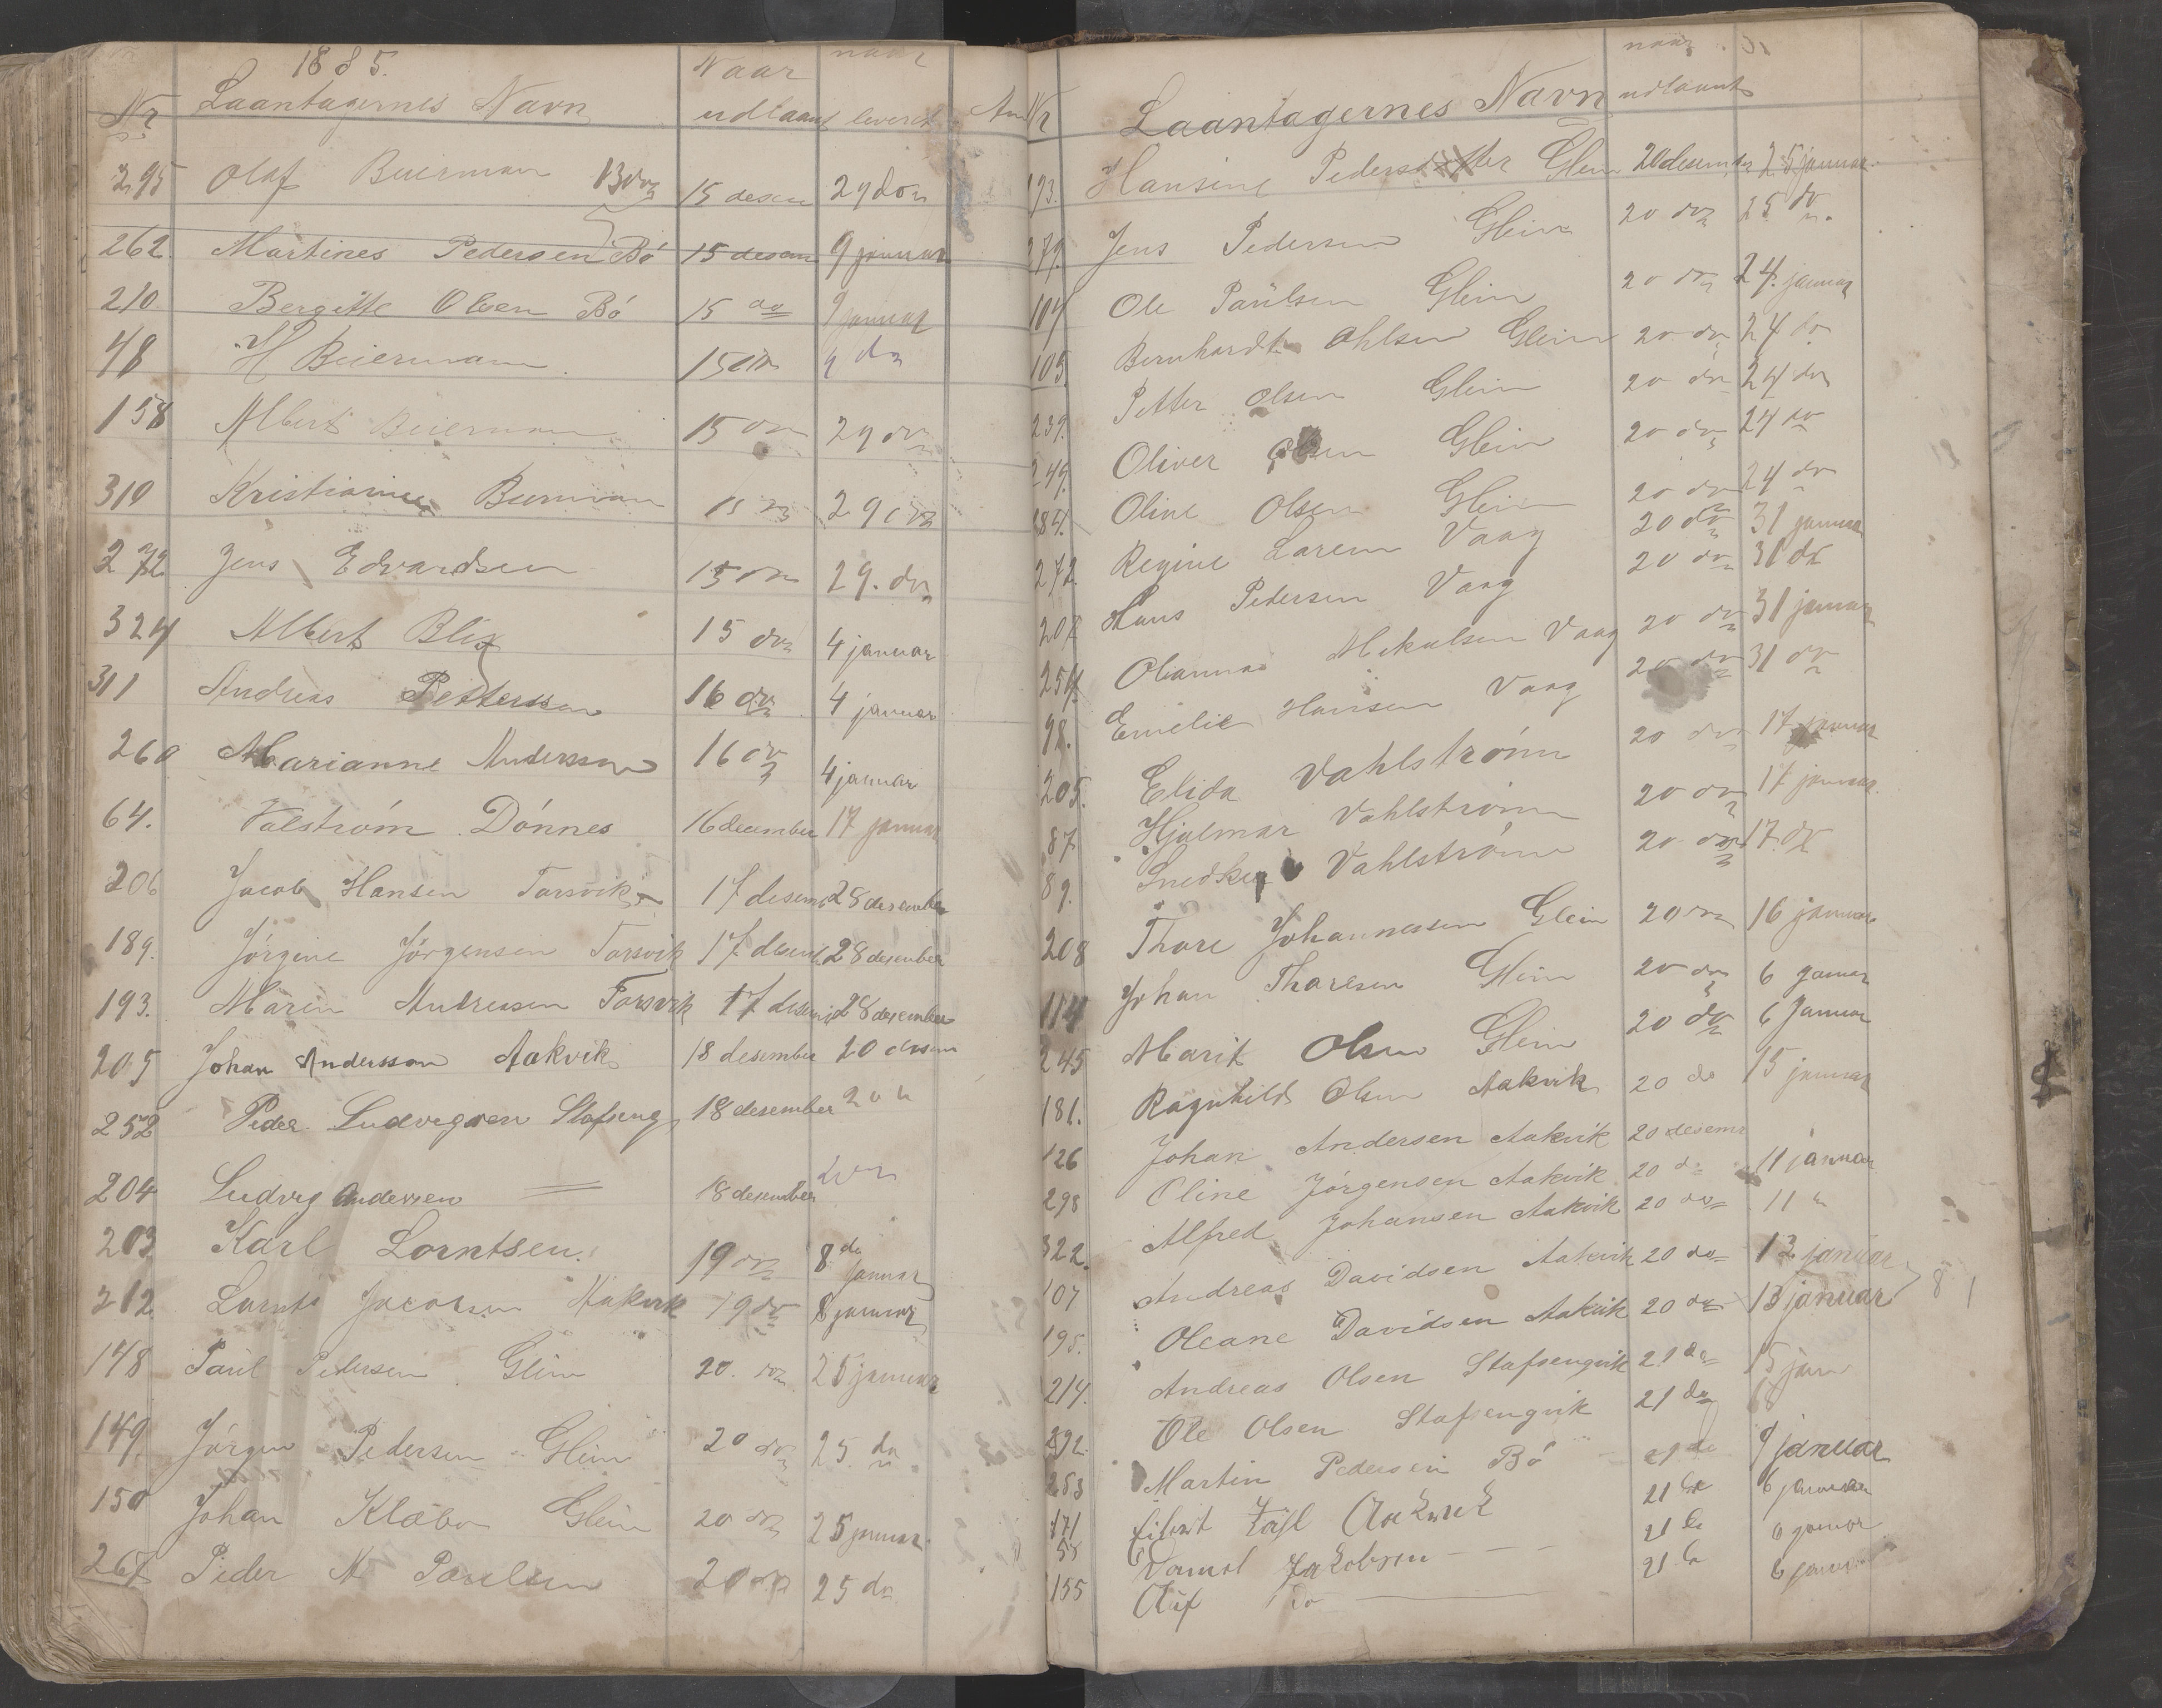 1885.
Nr Laantagernes Navn Naar udlaant naar leveret An
295 Olaf Beierman 15 desem 29 don
262. Martines Pedersen Bó 15 desem 9 januar
210 Bergitte Olsen Bó 15 do 9 januar
48 H Beierman. 15 do 9 do
158 Albert Beierman 15 do 29 do
310 Kristianne Beierman 15 do 29 do
272 Jens Edvardsen 15 do 29. do
324 Albert Blix 15 do 4 januar
311 Andreas Pettersen 16 do 4 januar
260 Marianne Andersson 16 do 4 januar
64. Valstróm Dónnes 16 december 17 januar
206 Jacob Hansen Forsvik 17 desem 28 desember
189. Jórgine Jórgensen Forsvik 17 desem 28 desember
193. Maren Andressen Forsvik 17 desem 28 desember
205 Johan Andersson Aakvik 18 desember 20 desem
252 Peder Ludvegsen Stafseng 18 desember
204 Ludvig Andersen 18 desember
203 Karl Lorntsen. 19 do 8 do januar
212 Lornts Jacobsen Aakvik 19 do 8 januar
148 Paul Pedersen Glein 20. do 25 januar
149. Jórgen Pedersen Glein 20 do 25 do
150 Johan Klæbo Glein 20 do 25 januar
267 Peder N Paulsen 20 do 25 do
Nr Laantagernes Navn naar udlaant
193. Hansine Pedersdatter Glein 20 desember 25 januar
279. Jens Pedersen Glein 20 do 25 do
104 Ole Paulsen Glein 20 do 24. januar
105. Bernhardt Ohlsen Glein 20 do 24 do
239. Petter Olsen Glein 20 do 24 do
249. Oliver Olsen Glein 20 do 24 do
184. Oline Olsen Glein 20 do 24 do
272. Regine Larsen Vaag 20 do 31 januar
207 Hans Pedersen Vaag 20 do 31 do
254. Oleanna Mekalsen Vaag 20 do 31 januar
98. Emelie Hansen Vaag 20 do 31 do
205. Elida Vahlstrómm 20 do 17 januar
87. Hjalmar Vahlstróm 20 do 17 januar
89. Snedker Vahlstróm 20 do 17. do
208 Thore Johannessen Glein 20 do 16 januar
114 Johan Tharesen Glein 20 do 6 januar
245 Marit Olsen Glein 20 do 6 Januar
181. Ragnhild Olsen Aakvik 20 do 15 januar
126 Johan Andersen Aakvik 20 desemr
298 Oline Jórgensen Aakvik 20 do 11 januar
322. Alfred Johansen Aakvik 20 do 11 "
107 Andreas Davidsen Aakvik 20 do 13 januar
195. Oleane Davidsen Aakvik 20 do 13 januar 8
214. Andreas Olsen Stafsengvik 21 do 15 jan
292. Ole Olsen Stafsengvik 21 do
283 Martin Pedersen Bó 21 do 9 januar
171 Aakvik 21 do 6 januar
55 Jakobsen 21 do 6 januar
155 Olif Do 21 do 6 januar